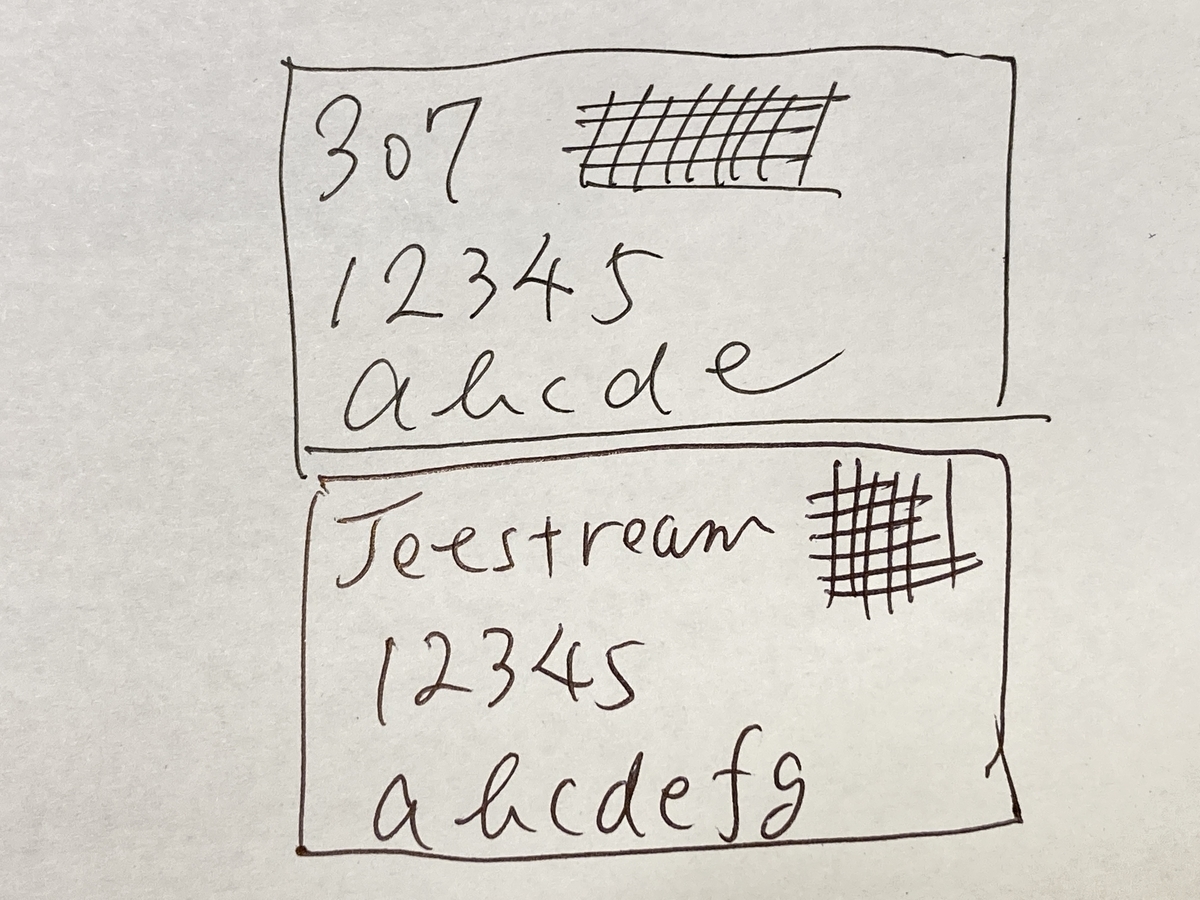 307
12345
abcde
Jeestream
12345
abcdefg